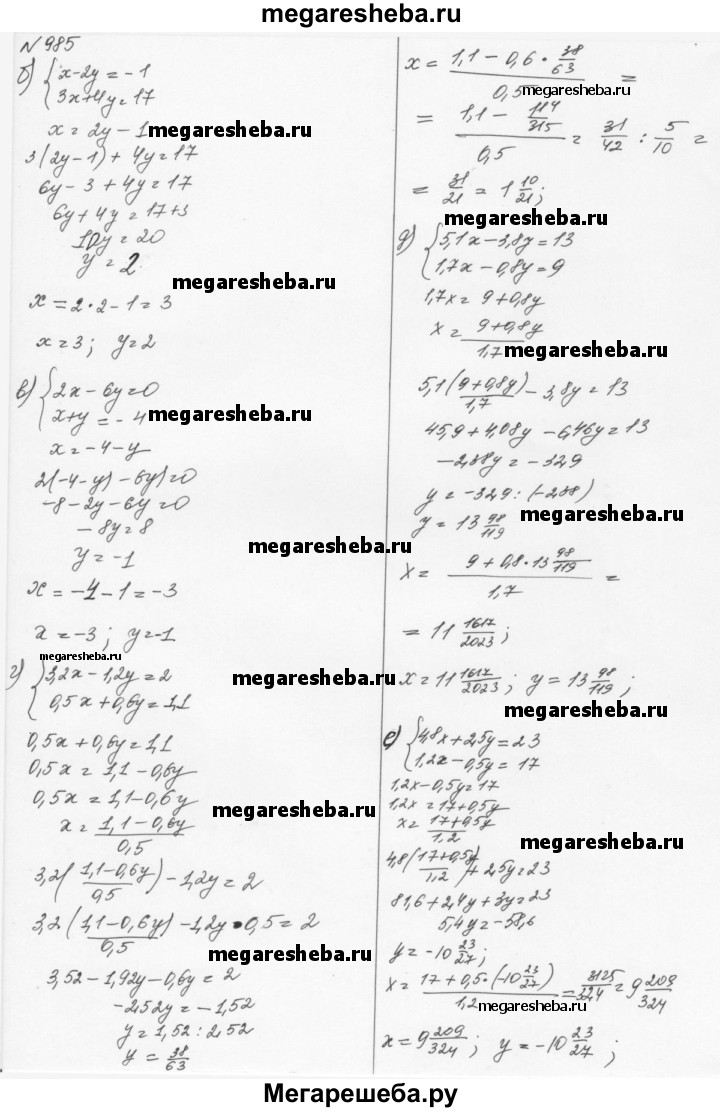 megaresheba.ru
№985
б) { x-2y = -1
3x+4y=17
x = 2y - 1 megaresheba.ru
3(2y-1) + 4y = 17
6y - 3 + 4y = 17
6y + 4y = 17+3
10y = 20
y = 2.
megaresheba.ru
x = 2·2-1 = 3
x = 3; y = 2
в) { 2x - 6y = 0
x+y = -4 megaresheba.ru
x = -4-y
2(-4-y) - 6y = 0
-8 - 2y - 6y = 0
-8y = 8
y = -1
megaresheba.ru
x = -4-1 = -3
x = -3; y = -1
megaresheba.ru
г) { 3,2x - 1,2y = 2
megaresheba.ru
0,5x + 0,6y = 1,1
0,5x + 0,6y = 1,1
0,5x = 1,1 - 0,6y
0,5x = 1,1 - 0,6y
megaresheba.ru
x = (1,1-0,6y)/0,5
3,2((1,1-0,6y)/0,5) - 1,2y = 2
3,2(1,1-0,6y)/0,5 - 1,2y·0,5 = 2
megaresheba.ru
3,52 - 1,92y - 0,6y = 2
-2,52y = -1,52
y = 1,52 : 2,52
y = 38/63
x = (1,1 - 0,6 · 38/63)/0,5 =
megaresheba.ru
= (1,1 - 114/315)/0,5 = 31/42 : 5/10 =
= 31/21 = 1 10/21;
megaresheba.ru
д) { 5,1x - 3,8y = 13
1,7x - 0,8y = 9
1,7x = 9 + 0,8y
x = (9+0,8y)/1,7
megaresheba.ru
5,1(9+0,8y)/1,7 - 3,8y = 13
45,9 + 4,08y - 6,46y = 13
-2,38y = -32,9
y = -32,9 : (-2,38)
y = 13 98/119 megaresheba.ru
x = (9 + 0,8·13 98/119)/1,7 =
= 11 1617/2023;
x = 11 1617/2023; y = 13 98/119;
megaresheba.ru
е) { 4,8x + 2,5y = 23
1,2x - 0,5y = 17
1,2x - 0,5y = 17
1,2x = 17 + 0,5y
x = (17+0,5y)/1,2
megaresheba.ru
4,8((17+0,5y)/1,2) + 2,5y = 23
81,6 + 2,4y + 3y = 23
5,4y = -58,6
y = -10 23/27;
x = (17 + 0,5·(-10 23/27))/1,2 = 3125/324 = 9 209/324
megaresheba.ru
x = 9 209/324; y = -10 23/27;
Мегарешеба.ру